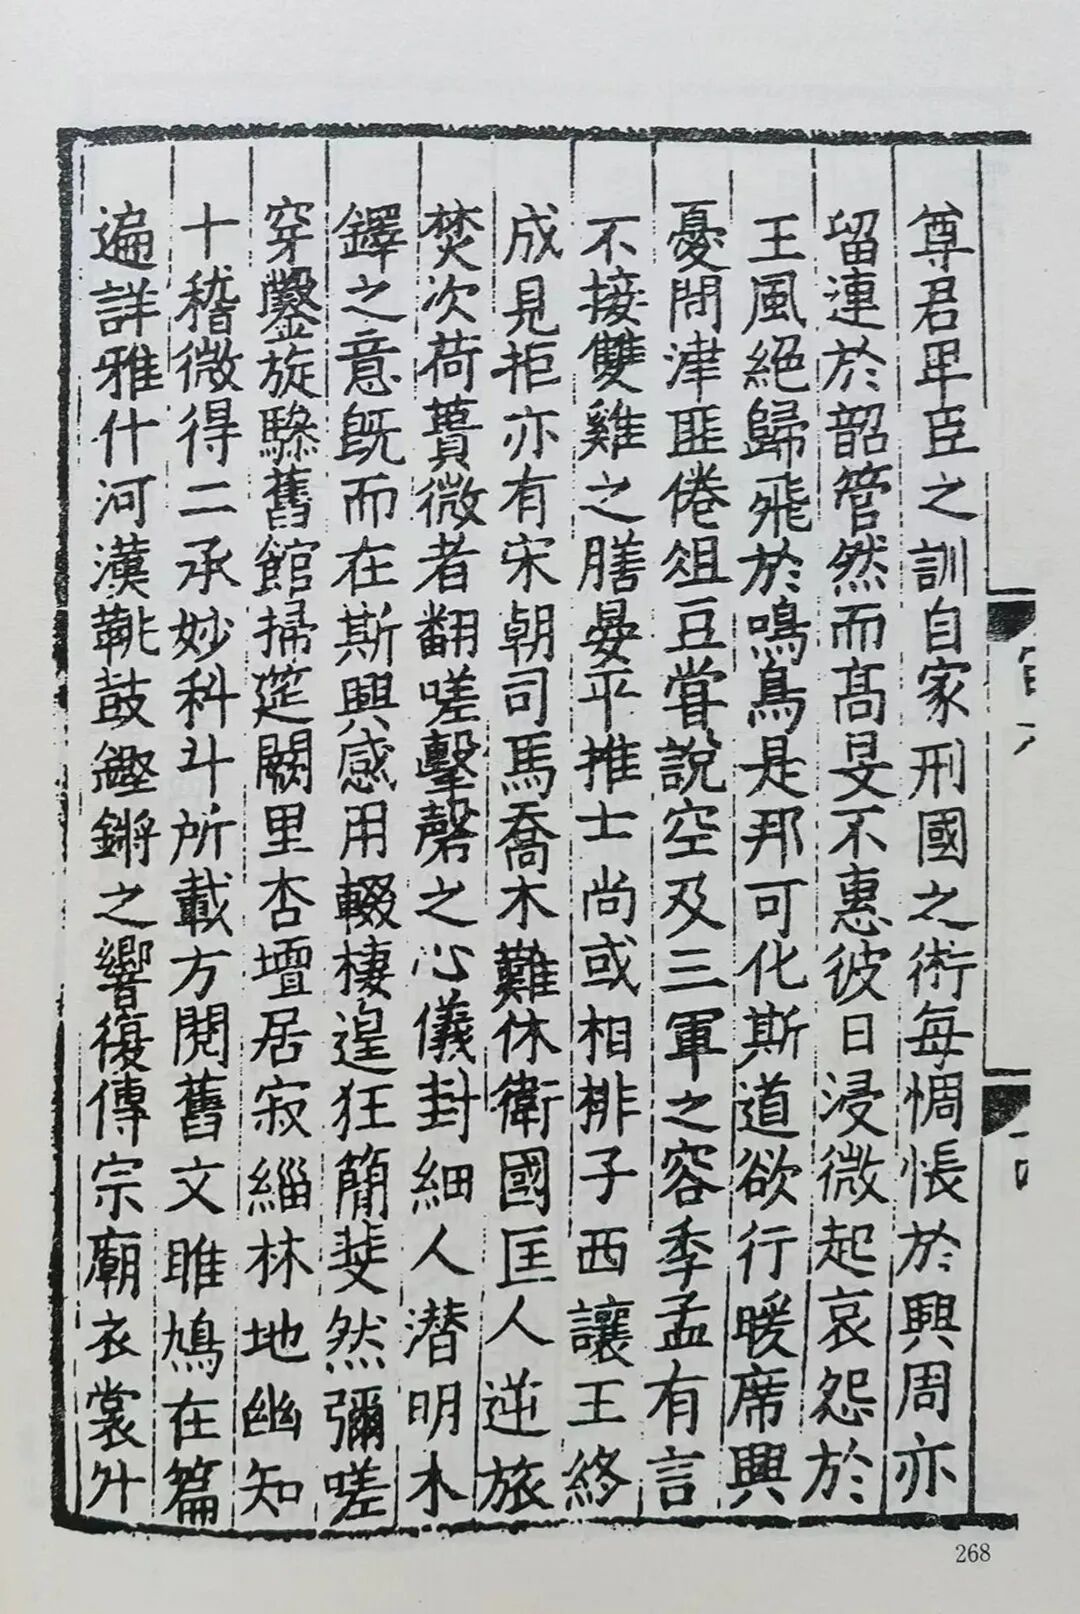 尊君卑臣之訓自家刑國之術每惆悵於興周亦
留連於韶管然而高旻不惠彼日浸微起哀怨於
王風絕歸飛於鳴鳥是邦可化斯道欲行暖席興
憂問津匪倦俎豆嘗說空及三軍之容季孟有言
不接雙雞之膳晏平推士尚或相排子西讓王終
成見拒亦有宋朝司馬喬木難休衛國匡人逆旅
焚次荷蕢微者翻嗟擊磬之心儀封細人潛明木
鐸之意既而在斯興感用輟棲遑狂簡斐然彌嗟
穿鑿旋驂舊館掃筵闕里杏壇居寂緇林地幽知
十稽微得二承妙科斗所載方閱舊文雎鳩在篇
遍詳雅什河漢鞉鼓鏗鏘之響復傳宗廟衣裳外
268